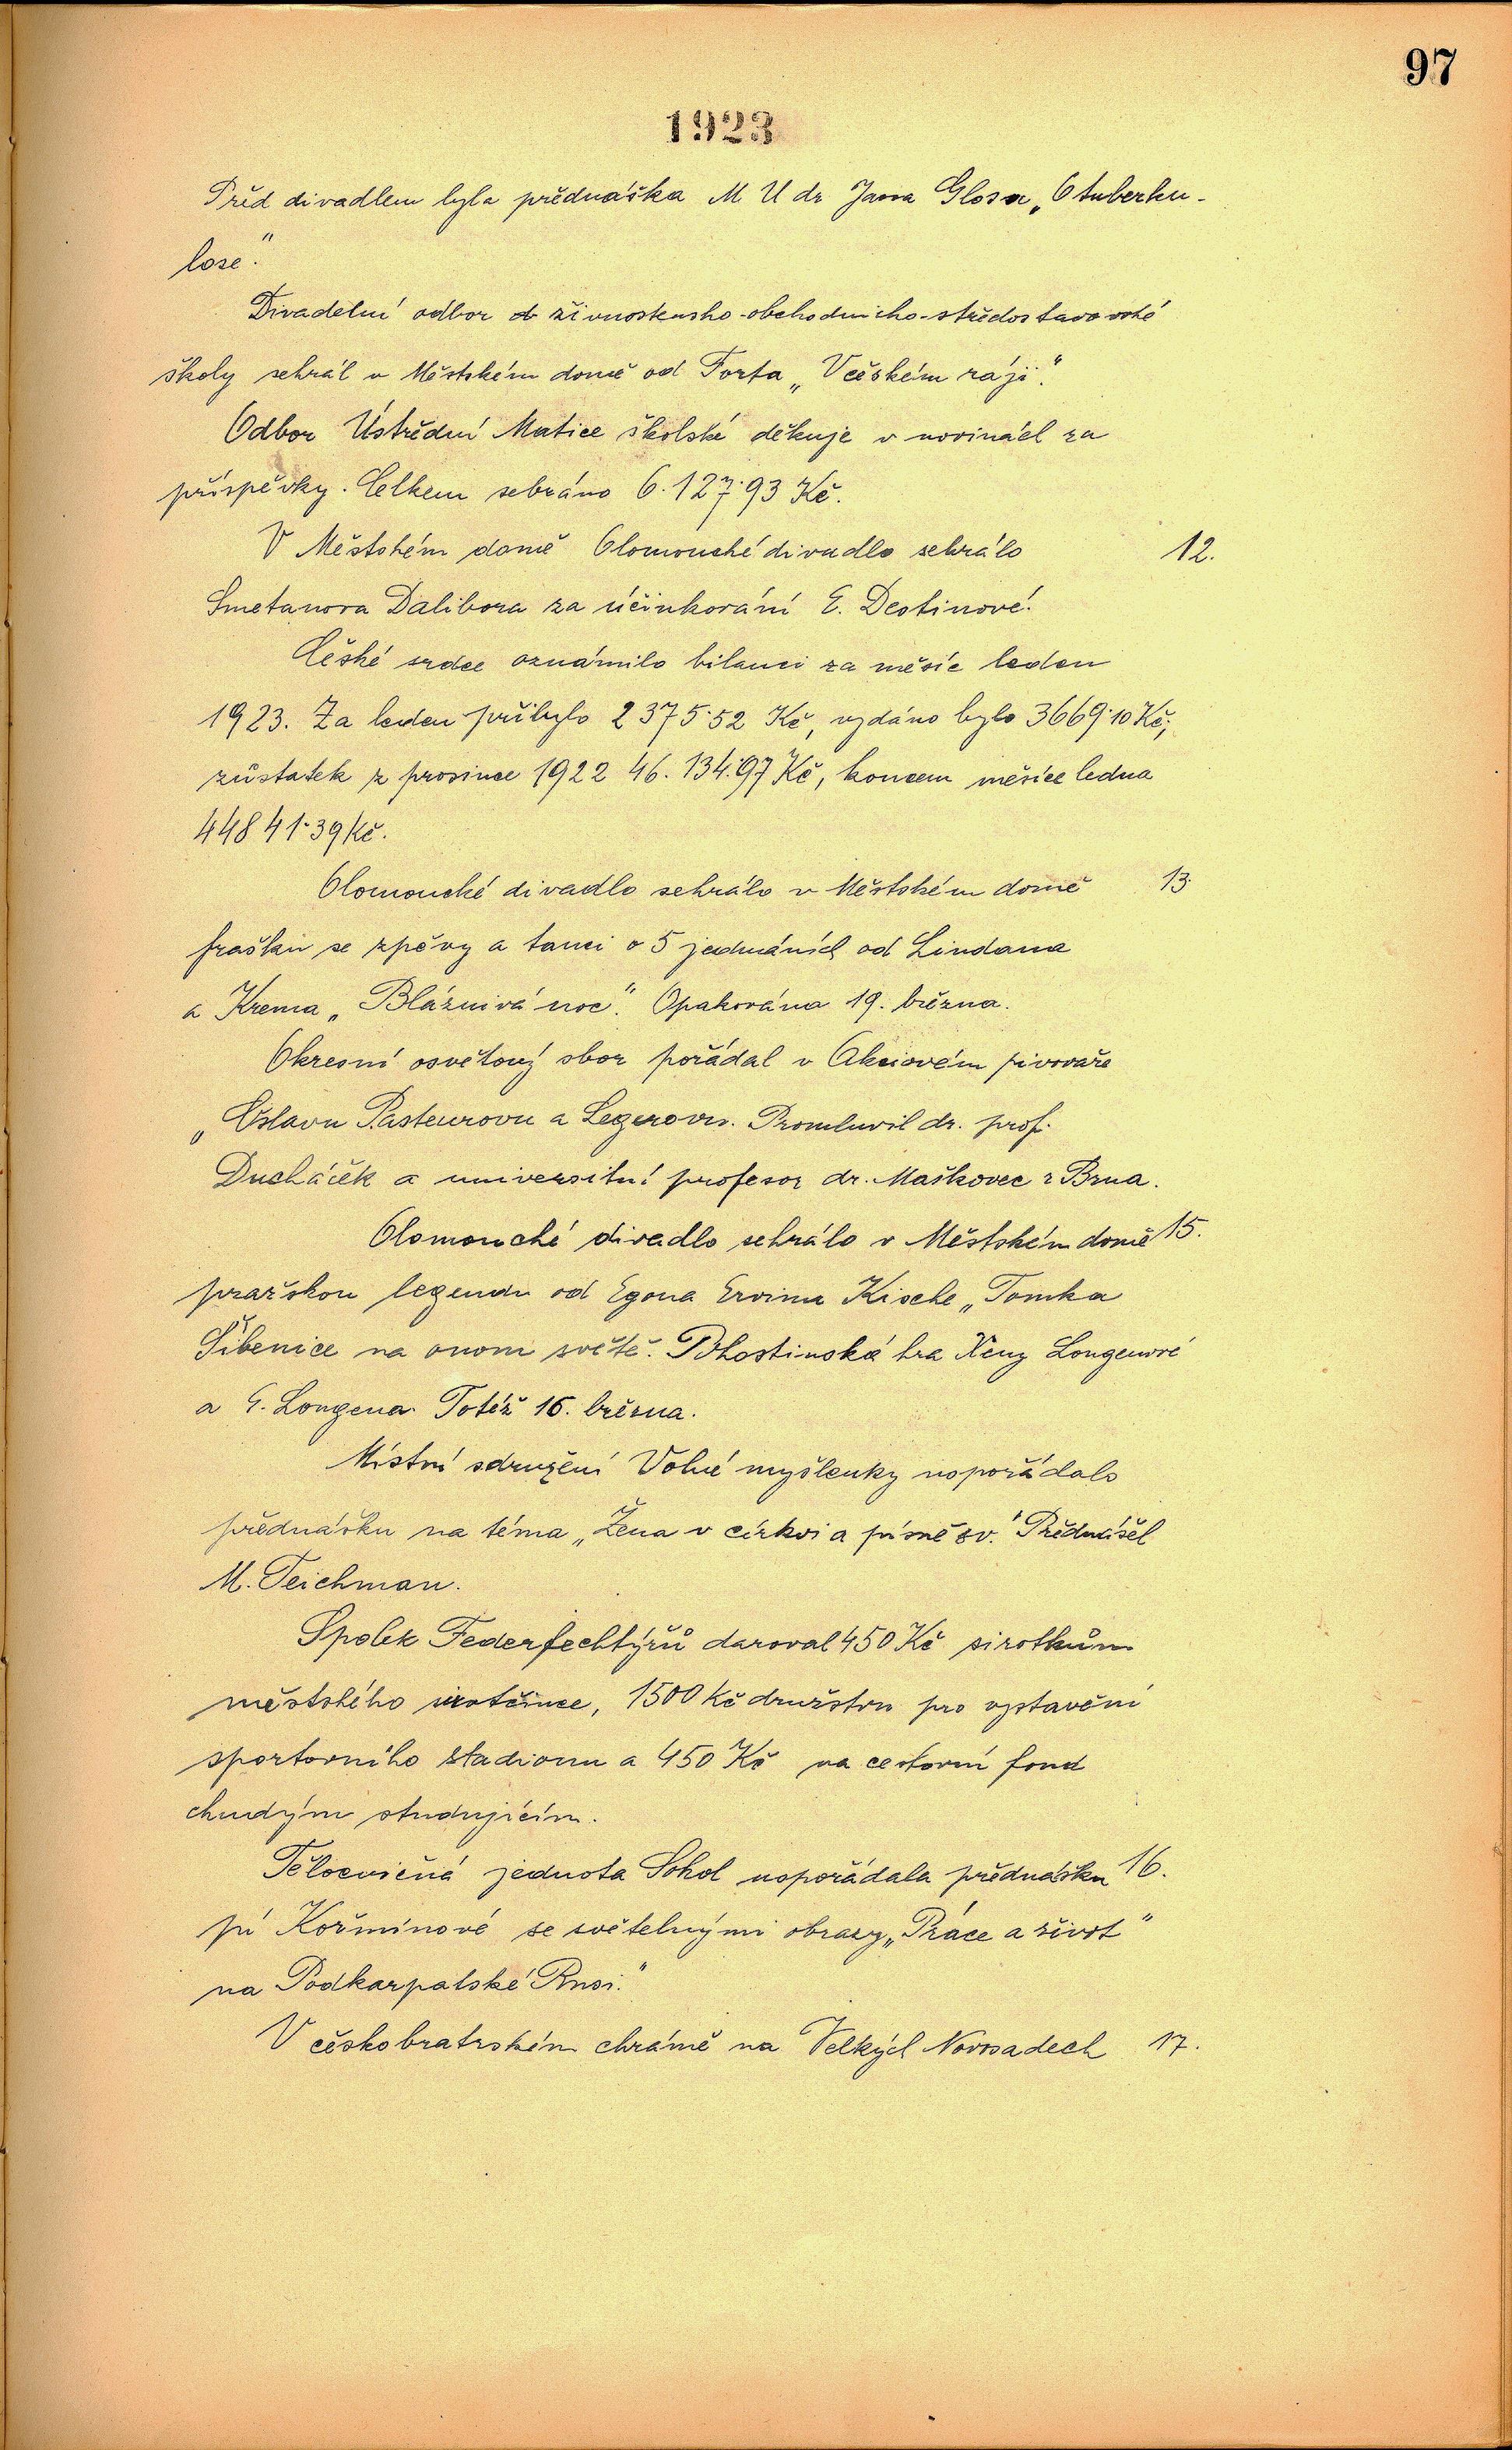 97
1923
Před divadlem byla přednáška M U dr Jana Glosa „O tuberku-
lose."
Divadelní odbor živnostensko-obchodnicko-středostavovské
školy sehrál v Městském domě od Forta „V českém ráji."
Odbor Ústřední Matice školské děkuje v novinách za
příspěvky. Celkem sebráno 6.127·93 Kč.
V Městském domě Olomoucké divadlo sehrálo 12.
Smetanova Dalibora za účinkování E. Destinové.
České srdce oznámilo bilanci za měsíc leden
1923. Za leden přibylo 2375·52 Kč, vydáno bylo 3669·10 Kč;
zůstatek z prosince 1922 46.134·97 Kč, koncem měsíce ledna
44841·39 Kč.
Olomoucké divadlo sehrálo v Městském domě 13.
frašku se zpěvy a tanci o 5 jednáních od Lindana
a Krema „Bláznivá noc". Opakována 19. března.
Okresní osvětový sbor pořádal v Akciovém pivovaře
„Oslavu Pasteurovu a Legerovu. Promluvil dr. prof.
Ducháček a universitní profesor dr. Maškovec z Brna.
Olomoucké divadlo sehrálo v Městském domě 15.
pražskou legendu od Egona Ervina Kische „Tonka
Šibenice na onom světě. Pohostinská hra Xeny Longenové
a E. Longena. Totéž 16. března.
Místní sdružení Volné myšlenky uspořádalo
přednášku na téma „Žena v církvi a písmě sv." Přednášel
M. Teichman.
Spolek Federfechtýřů daroval 450 Kč sirotkům
městského sirotčince, 1500 Kč družstvu pro vystavění
sportovního stadionu a 450 Kč na cestovní fond
chudým studujícím.
Tělocvičná jednota Sokol uspořádala přednášku 16.
pí Kořmínové se světelnými obrazy „Práce a život"
na Podkarpatské Rusi."
V českobratrském chrámě na Velkých Novosadech 17.